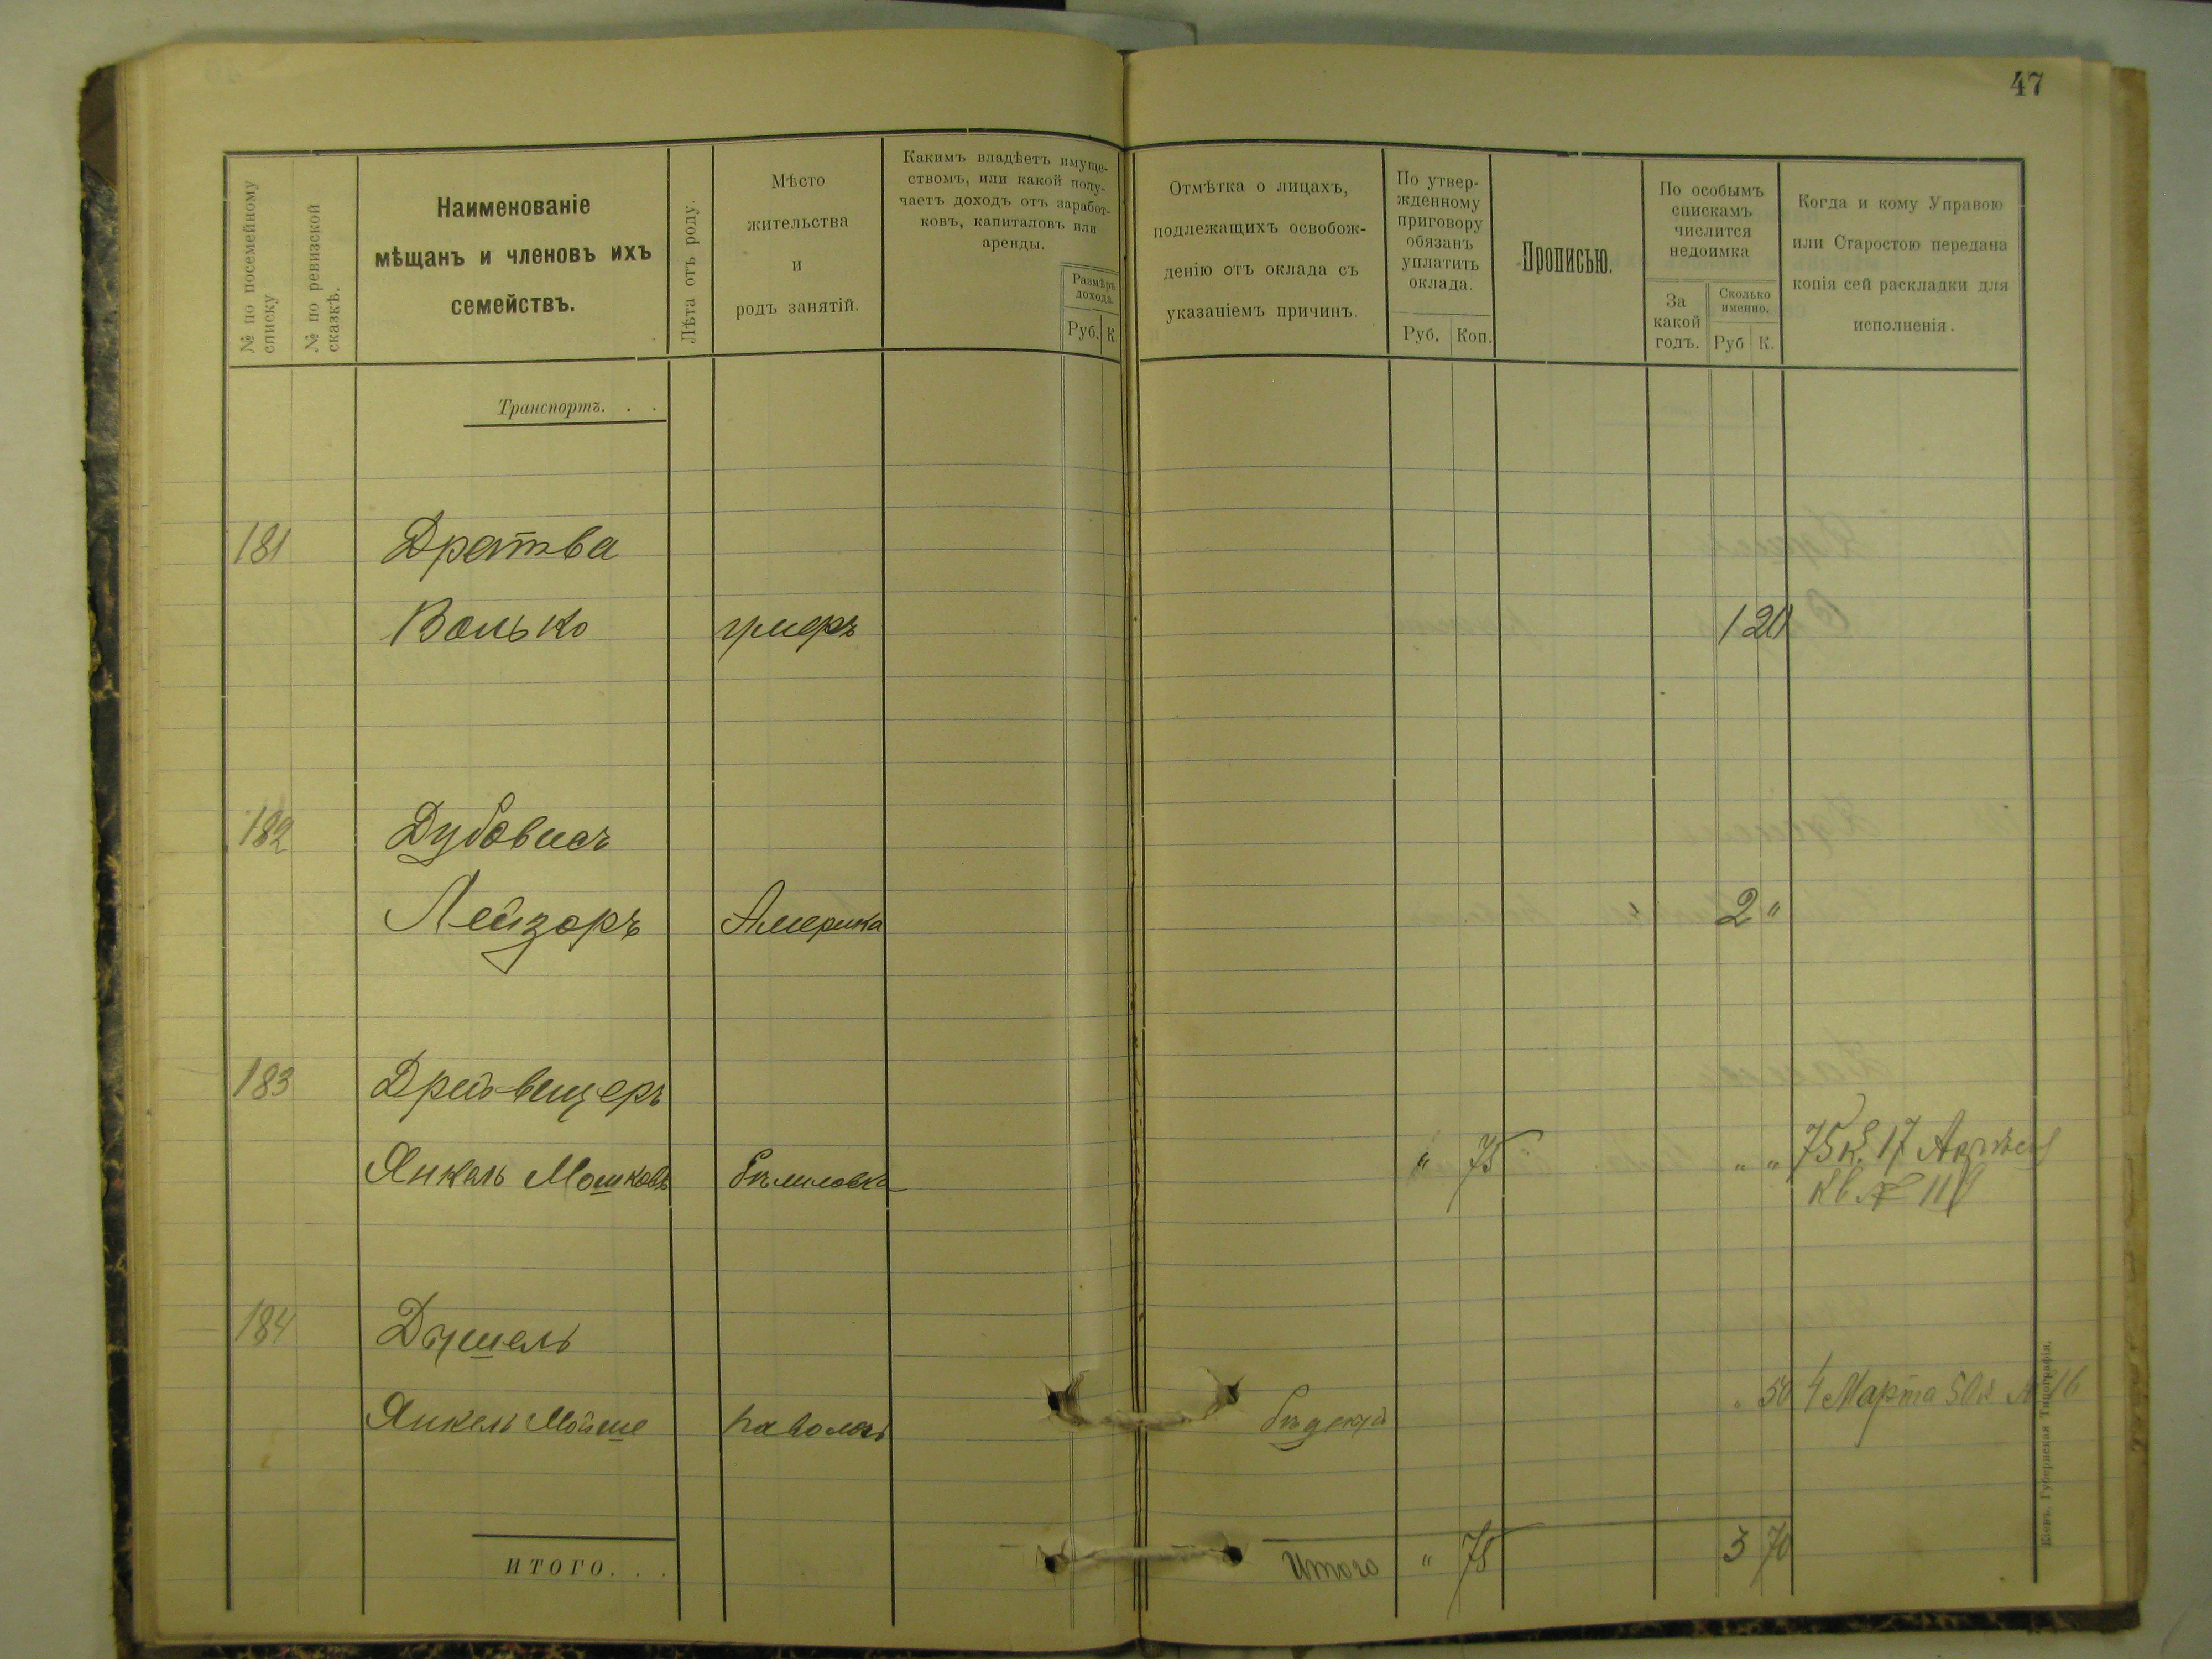 47
№ по посемейному списку
№ по ревизской сказкѣ.
Наименованіе
мѣщанъ и членовъ ихъ
семействъ.
Лѣта отъ роду.
Мѣсто
жительства
и
родъ занятій.
Какимъ владѣетъ имуще-
ствомъ, или какой полу-
чаетъ доходъ отъ заработ-
ковъ, капиталовъ или
аренды.
Размѣръ
дохода.
Руб. К.
Отмѣтка о лицахъ,
подлежащихъ освобож-
денію отъ оклада съ
указаніемъ причинъ.
По утвер-
жденному
приговору
обязанъ
уплатить
оклада.
Руб. Коп.
Прописью.
По особымъ
спискамъ
числится
недоимка
За
какой
годъ.
Сколько
именно.
Руб К.
Когда и кому Управою
или Старостою передана
копія сей раскладки для
исполненія.
Транспортъ. . .
181 Дратва
Волько умеръ 1 20
182 Дубовисъ
Лейзоръ Америка 2 "
183 Дрей-вицеръ
Янкель Мошковъ " 75 " " 75 к. 17 Апрѣля
кв №
184 Душель
Янкель Мойше Паволочь " 50 4 Марта 50 к № 16
ИТОГО. . . Итого " 75 3 70
Кіевъ. Губернская Типографія.